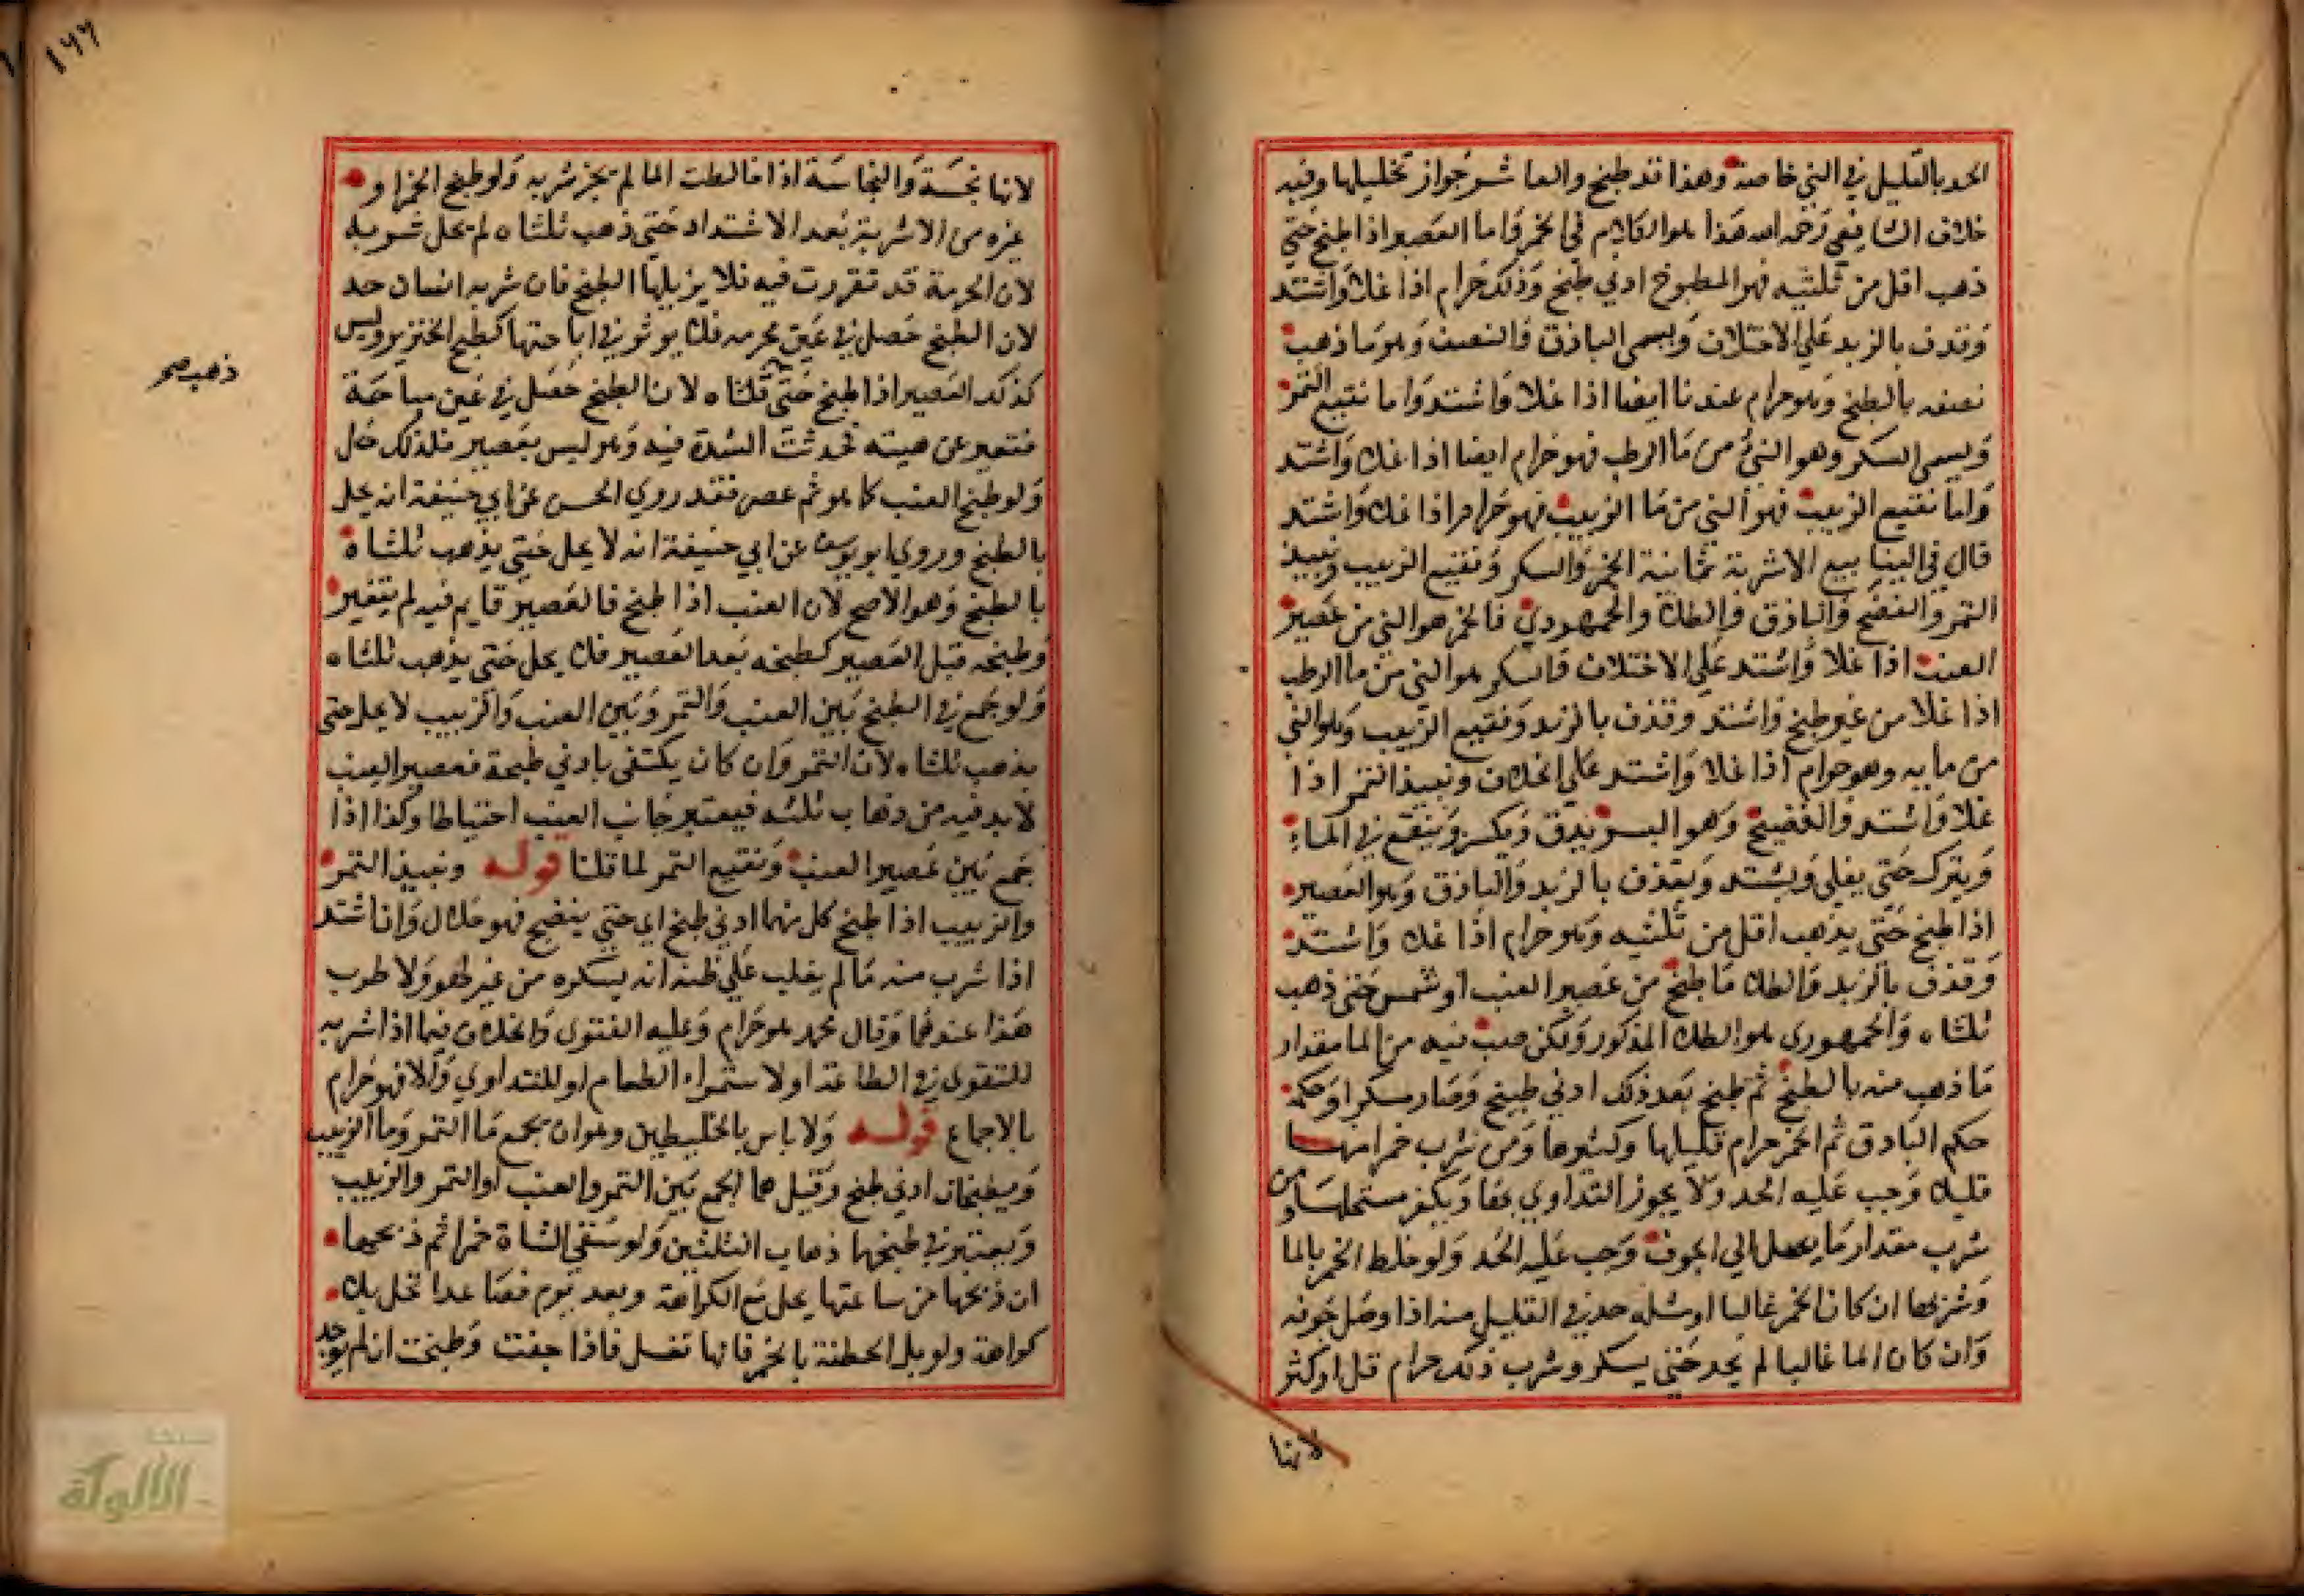 الحد بالقليل في الني خاصة وهذا قد طبخ والعاشر جواز تخليلها وفيه
خلاف الشافعي رحمه الله هذا هو الكلام في الخمر فاما العصير اذا طبخ حتي
ذهب اقل من ثلثيه فهو المطبوخ ادني طبخ وذلك حرام اذا غلا واشتد
وقذف بالزبد علي الاختلاف ويسمي الباذق والنصف وهو ما ذهب
نصفه بالطبخ وهو حرام عندنا ايضا اذا غلا واشتد واما نقيع التمر
ويسمي السكر وهو الني من ما الرطب فهو حرام ايضا اذا غلا واشتد
واما نقيع الزبيب فهو الني من ما الزبيب فهو حرام اذا غلا واشتد
قال في الينابيع الاشربة ثمانية الخمر والسكر ونقيع الزبيب ونبيذ
التمر والفضيخ والباذق والطلا والجمهودي فالخمر هو الني من عصير
العنب اذا غلا واشتد علي الاختلاف فالسكر هو الني من ما الرطب
اذا غلا من غير طبخ واشتد وقذف بالزبد ونقيع الزبيب وهو الني
من مايه وهو حرام اذا غلا واشتد علي الخلاف ونبيذ التمر اذا
غلا واشتد والفضيخ وهو البسر يدق ويكسر وينقع في الماء
ويترك حتي يغلي ويشتد ويقذف بالزبد والباذق وهو العصير
اذا طبخ حتي يذهب اقل من ثلثيه وهو حرام اذا غلا واشتد
وقذف بالزبد والطلا ما طبخ من عصير العنب او شمس حتي ذهب
ثلثاه والجمهوري هو الطلا المذكور ولكن صب فيه من الما مقدار
ما ذهب منه بالطبخ ثم طبخ بعد ذلك ادني طبخ وصار مسكرا وحكمه
حكم الباذق ثم الخمر حرام قليلها وكثيرها ومن شرب خمرا منها
قليلا وجب عليه الحد ولا يجوز التداوي بها ويكفر مستحلها ومن
شرب مقدار ما يصل الي الجوف وجب عليه الحد ولو خلط الخمر بالما
وشربها ان كان الخمر غالبا او مثله حد في القليل منه اذا وصل جوفه
وان كان الما غالبا لم يحد حتي يسكر وشرب ذلك حرام قل او كثر
لانها
١٦٦
لانها نجسة والنجاسة اذا خالطت الما لم يجز شربه ولو طبخ الخمر او
غيره من الاشربة بعد الاشتداد حتي ذهب ثلثاه لم يحل شربه
لان الحرمة قد تقررت فيه فلا يزيلها الطبخ فان شربه انسان حد
لان الطبخ حصل في عين محرمه فلا يوثر في اباحتها كطبخ الخنزير وليس
كذلك العصير اذا طبخ حتي ثلثاه لان الطبخ حصل في عين مباحة
ذهب صح
فتغير عن هيته فحدثت الشدة فيه وهو ليس بعصير فلذلك حل
ولو طبخ العنب كما هو ثم عصر فقد روي الحسن عن ابي حنيفة انه يحل
بالطبخ وروي ابو يوسف عن ابي حنيفة انه لا يحل حتي يذهب ثلثاه
بالطبخ وهو الاصح لان العنب اذا طبخ فالعصير قايم فيه لم يتغير
وطبخه قبل العصير كطبخه بعد العصير فلا يحل حتي يذهب ثلثاه
ولو جمع في الطبخ بين العنب والتمر وبين العنب والزبيب لا يحل حتي
يذهب ثلثاه لان التمر وان كان يكتفي بادني طبخة فعصير العنب
لا بد فيه من ذهاب ثلثه فيعتبر جانب العنب احتياطا وكذا اذا
جمع بين عصير العنب ونقيع التمر لما قلنا قوله ونبيذ التمر
والزبيب اذا طبخ كل منهما ادني طبخ اي حتي ينضج فهو حلال وان اشتد
اذا شرب منه ما لم يغلب علي ظنه انه يسكره من غير لهو ولا طرب
هذا عندهما وقال محمد هو حرام وعليه الفتوي والخلاف فيما اذا شربه
للتقوي في الطاعة او لاستمراء الطعام او للتداوي والا فهو حرام
بالاجماع قوله ولا باس بالخليطين وهو ان يجمع ما التمر وما الزبيب
ويطبخان ادني طبخ وقيل هما الجمع بين التمر والعنب او التمر والزبيب
ويعتبر في طبخهما ذهاب الثلثين ولو سقي الشاة خمرا ثم ذبحها
ان ذبحها من ساعتها يحل مع الكراهة وبعد يوم فصاعدا تحل بلا
كراهة ولو بل الحطنة بالخمر فانها تغسل فاذا جفت وطبخت ان لم يوجد